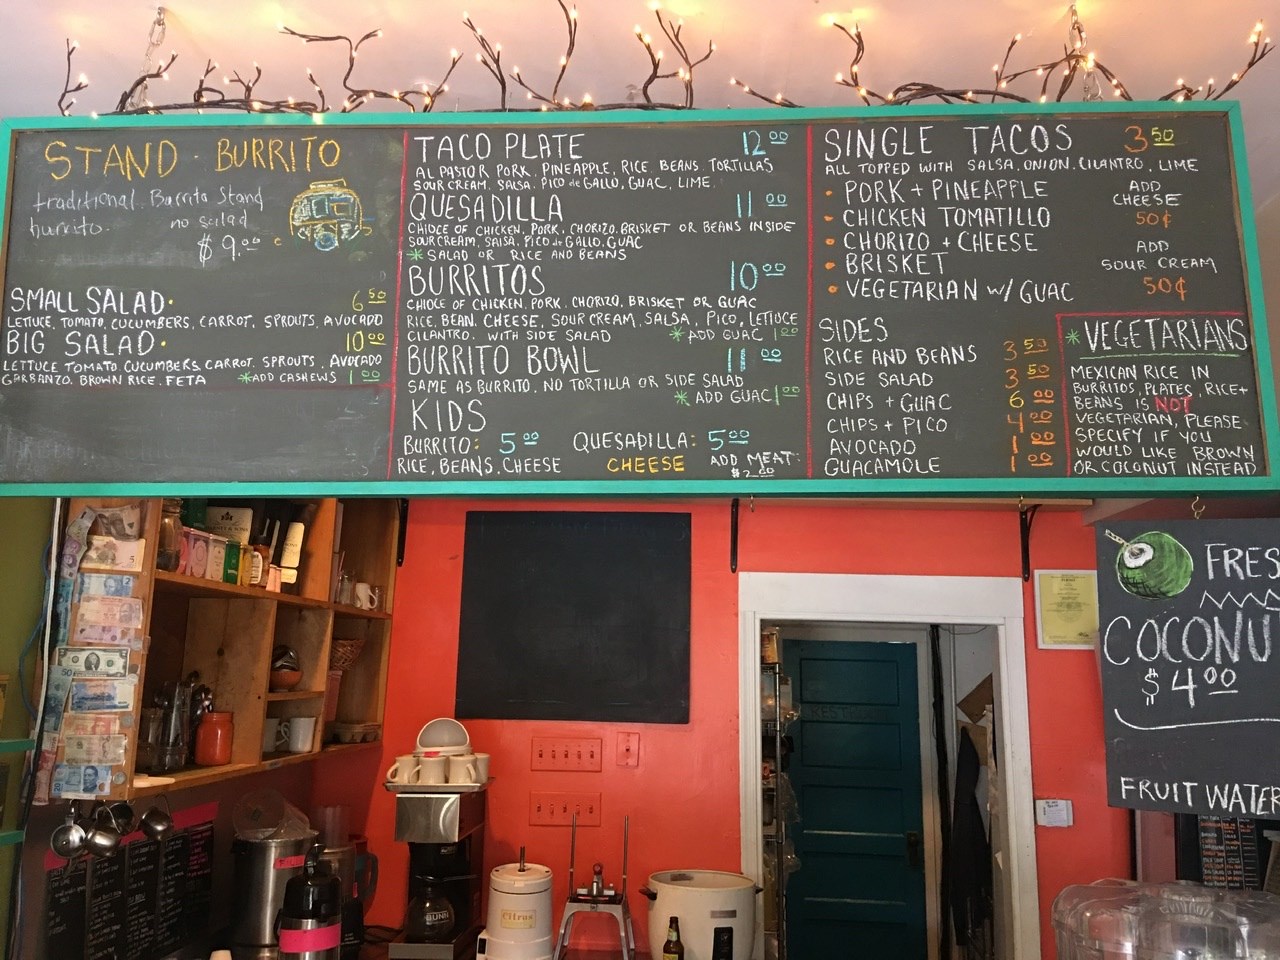 STAND · BURRITO
traditional. Burrito Stand
burrito. no salad
$9.00
SMALL SALAD· 6 50
LETUCE, TOMATO, CUCUMBERS, CARROT, SPROUTS, AVOCADO
BIG SALAD· 10 00
LETTUCE TOMATO CUCUMBERS CARROT. SPROUTS, AVOCADO
GARBANZO, BROWN RICE, FETA *ADD CASHEWS 1 00
TACO PLATE 12 00
AL PASTOR PORK, PINEAPPLE, RICE, BEANS, TORTILLAS
SOUR CREAM, SALSA, PICO de GALLO, GUAC, LIME
QUESADILLA 11 00
CHIOCE OF CHICKEN, PORK, CHORIZO, BRISKET OR BEANS INSIDE
SOUR CREAM, SALSA, PICO de GALLO, GUAC
* SALAD OR RICE AND BEANS
BURRITOS 10 00
CHIOCE OF CHICKEN, PORK, CHORIZO, BRISKET OR GUAC
RICE, BEAN, CHEESE, SOUR CREAM, SALSA, PICO, LETUCE
CILANTRO. WITH SIDE SALAD * ADD GUAC 1 00
BURRITO BOWL 11 00
SAME AS BURRITO, NO TORTILLA OR SIDE SALAD
* ADD GUAC 1 00
KIDS
BURRITO: 5 00 QUESADILLA: 5 00
RICE, BEANS, CHEESE CHEESE ADD MEAT: $2.00
SINGLE TACOS 3 50
ALL TOPPED WITH SALSA, ONION, CILANTRO, LIME
• PORK + PINEAPPLE
• CHICKEN TOMATILLO
• CHORIZO + CHEESE
• BRISKET
• VEGETARIAN W/ GUAC
ADD
CHEESE
50¢
ADD
SOUR CREAM
50¢
SIDES
RICE AND BEANS 3 50
SIDE SALAD 3 50
CHIPS + GUAC 6 00
CHIPS + PICO 4 00
AVOCADO 1 00
GUACAMOLE 1 00
* VEGETARIANS
MEXICAN RICE IN
BURRITOS, PLATES, RICE+
BEANS IS NOT
VEGETARIAN, PLEASE
SPECIFY IF YOU
WOULD LIKE BROWN
OR COCONUT INSTEAD
FRES
COCONU
$4 00
FRUIT WATER
Citrus
BUNN